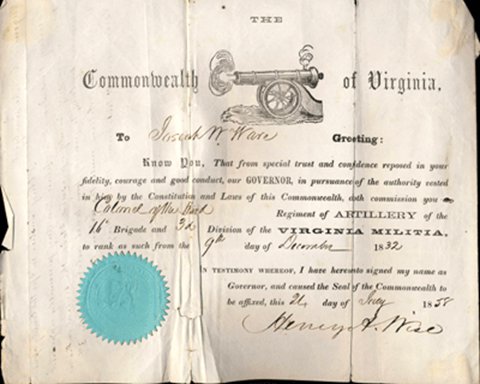 THE
Commonwealth of Virginia.
To Joseph W. Ware Greeting:
KNOW YOU, That from special trust and confidence reposed in your
fidelity, courage and good conduct, our GOVERNOR, in pursuance of the authority vested
in him by the Constitution and Laws of this Commonwealth, doth commission you
Colonel of the Regiment of ARTILLERY of the
Brigade and 3d Division of the VIRGINIA MILITIA,
to rank as such from the 9th day of December 1832
IN TESTIMONY WHEREOF, I have hereunto signed my name as
Governor, and caused the Seal of the Commonwealth to
be affixed, this day of July 1858
Henry A. Wise